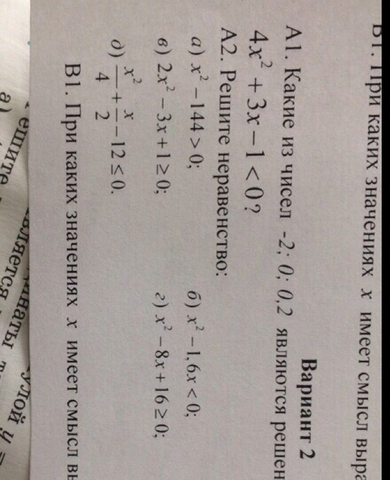 В1. При каких значениях x имеет смысл
Вариант 2
А1. Какие из чисел -2; 0; 0,2 являются
4x² + 3x − 1 < 0?
А2. Решите неравенство:
а) x² − 144 > 0; б) x² − 1,6x < 0;
в) 2x² − 3x + 1 ≥ 0; г) x² − 8x + 16 ≥ 0;
д) x²/4 + x/2 − 12 ≤ 0.
В1. При каких значениях x имеет смысл